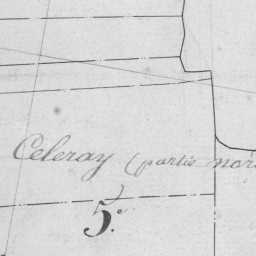 Celeray (partie nor
5.e